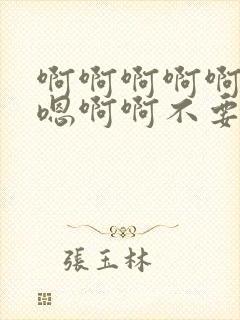 啊啊啊啊啊
嗯啊啊不要
張玉林